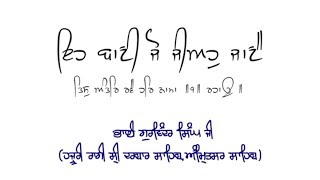 ਇਹ ਬਾਣੀ ਜੋ ਜੀਅਹੁ ਜਾਣੈ॥
ਤਿਸੁ ਅੰਤਰਿ ਰਵੈ ਹਰਿ ਨਾਮਾ ॥੧॥ ਰਹਾਉ ॥
ਭਾਈ ਗੁਰਵਿੰਦਰ ਸਿੰਘ ਜੀ
(ਹਜ਼ੂਰੀ ਰਾਗੀ ਸ੍ਰੀ ਦਰਬਾਰ ਸਾਹਿਬ, ਅੰਮ੍ਰਿਤਸਰ ਸਾਹਿਬ)